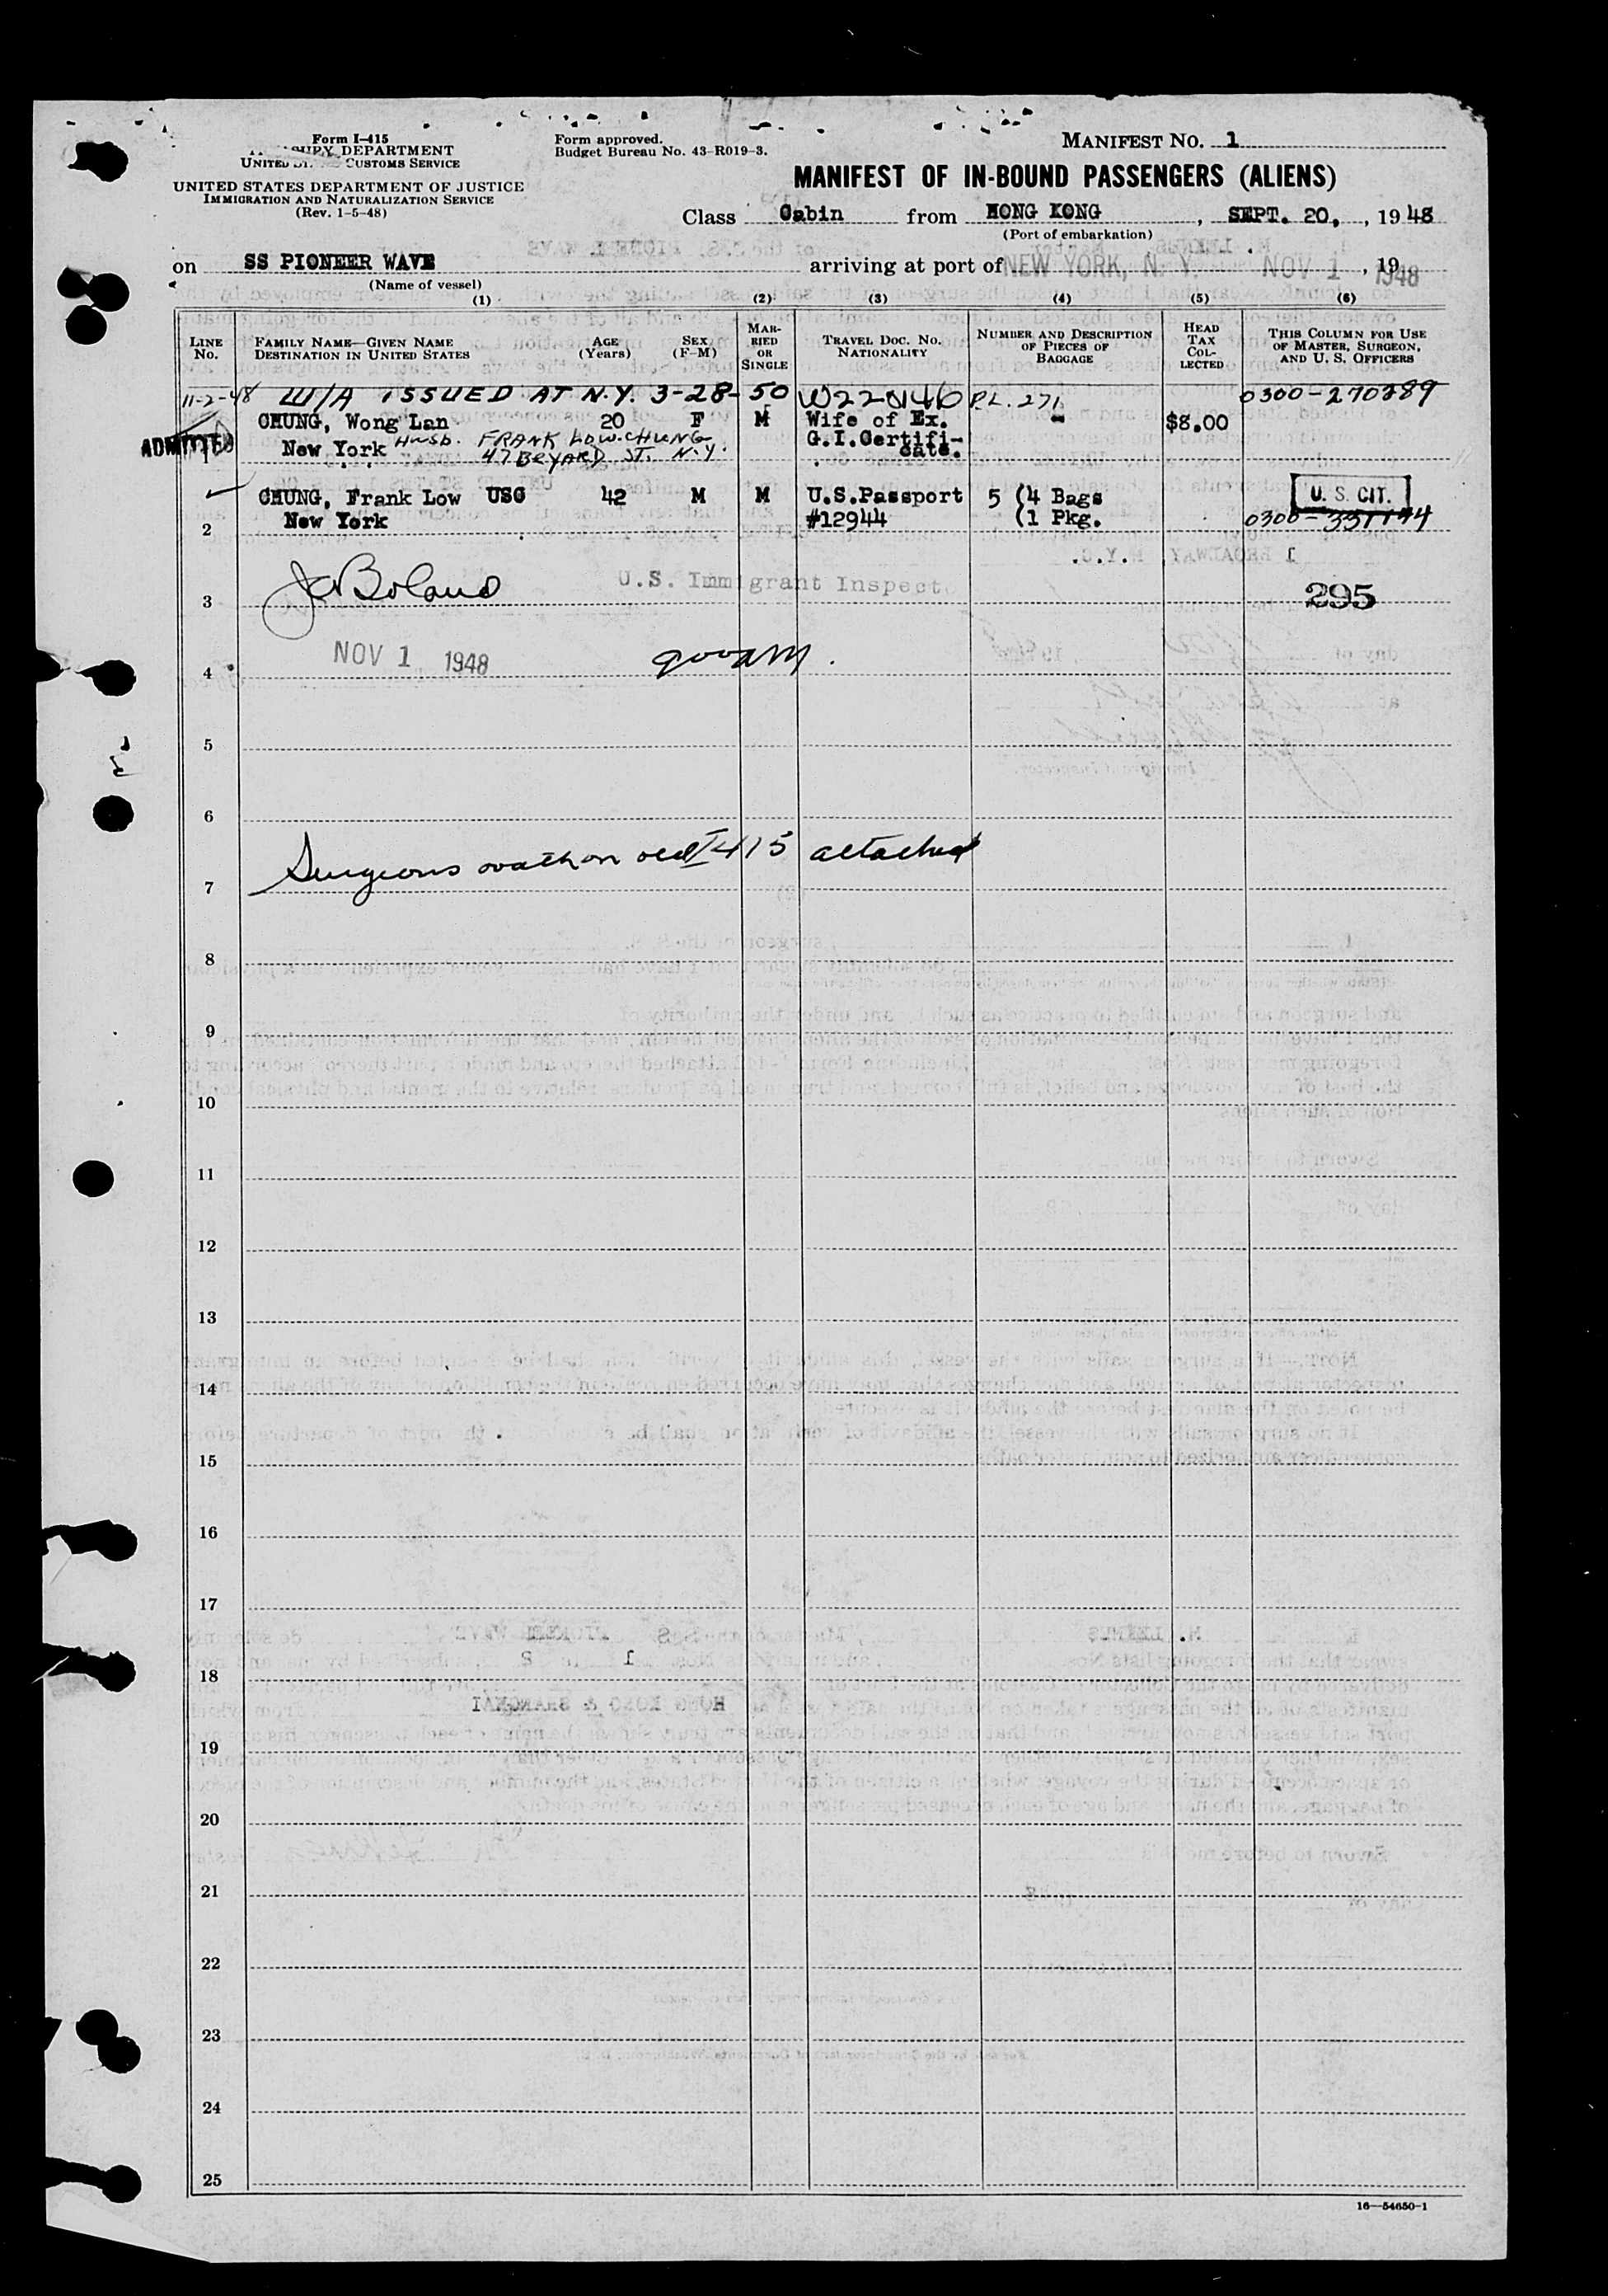 Form I-415
TREASURY DEPARTMENT
UNITED STATES CUSTOMS SERVICE
UNITED STATES DEPARTMENT OF JUSTICE
IMMIGRATION AND NATURALIZATION SERVICE
(Rev. 1-5-48)
Form approved.
Budget Bureau No. 43-R019-3.
MANIFEST NO. 1
MANIFEST OF IN-BOUND PASSENGERS (ALIENS)
Class Cabin from HONG KONG, SEPT. 20, , 1948
(Port of embarkation)
on SS PIONEER WAVE arriving at port of NEW YORK, N. Y. NOV 1 , 19 1948
(Name of vessel)
(1) (2) (3) (4) (5) (6)
LINE No.
FAMILY NAME—GIVEN NAME
DESTINATION IN UNITED STATES
AGE (Years)
SEX (F-M)
MARRIED OR SINGLE
TRAVEL DOC. NO. NATIONALITY
NUMBER AND DESCRIPTION OF PIECES OF BAGGAGE
HEAD TAX COLLECTED
THIS COLUMN FOR USE OF MASTER, SURGEON, AND U. S. OFFICERS
11-2-48 W/A ISSUED AT N.Y. 3-28-50 W220146 P.L. 271 0300-270389
ADMITTED 1 CHUNG, Wong Lan 20 F M Wife of Ex. - $8.00
New York Husb. FRANK LOW CHUNG G.I.Certifi-
47 BAYARD ST. N.Y. cate.
CHUNG, Frank Low USC 42 M M U.S.Passport 5 (4 Bags U. S. CIT.
2 New York #12944 (1 Pkg. 0300-
U.S. Immigrant Inspect
3 J Boland 295
NOV 1 1948
4
5
6
Surgeons oath on old I415 attached
7
8
9
10
11
12
13
14
15
16
17
18
19
20
21
22
23
24
25
16—54650-1